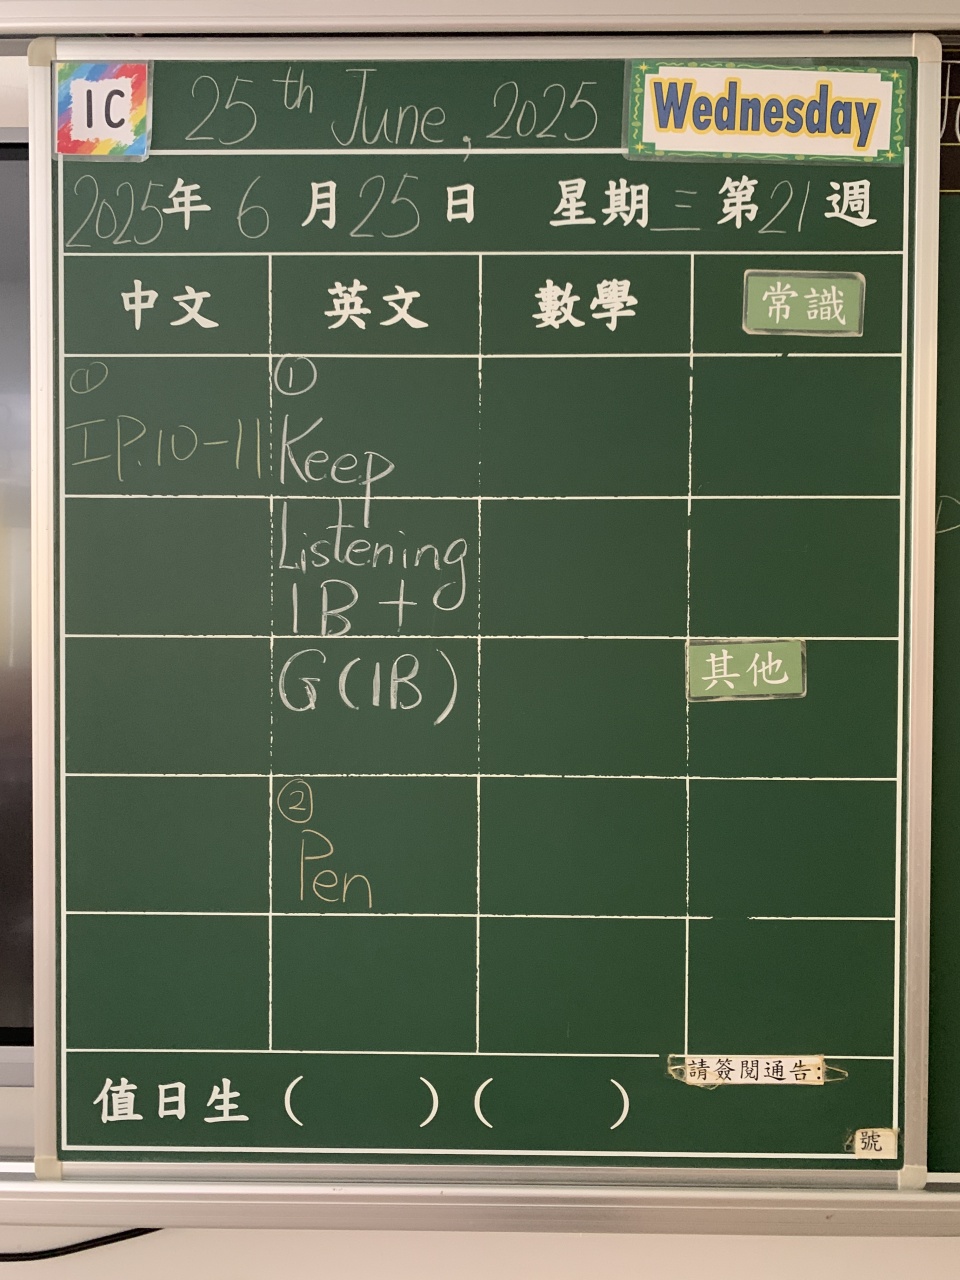 1C 25th June, 2025 Wednesday
2025年 6月25日 星期三 第21週
中文 英文 數學 常識
①
IP.10-11
①
Keep
Listening
1B +
G(1B)
②
Pen
其他
值日生 ( ) ( )
請簽閱通告:
號